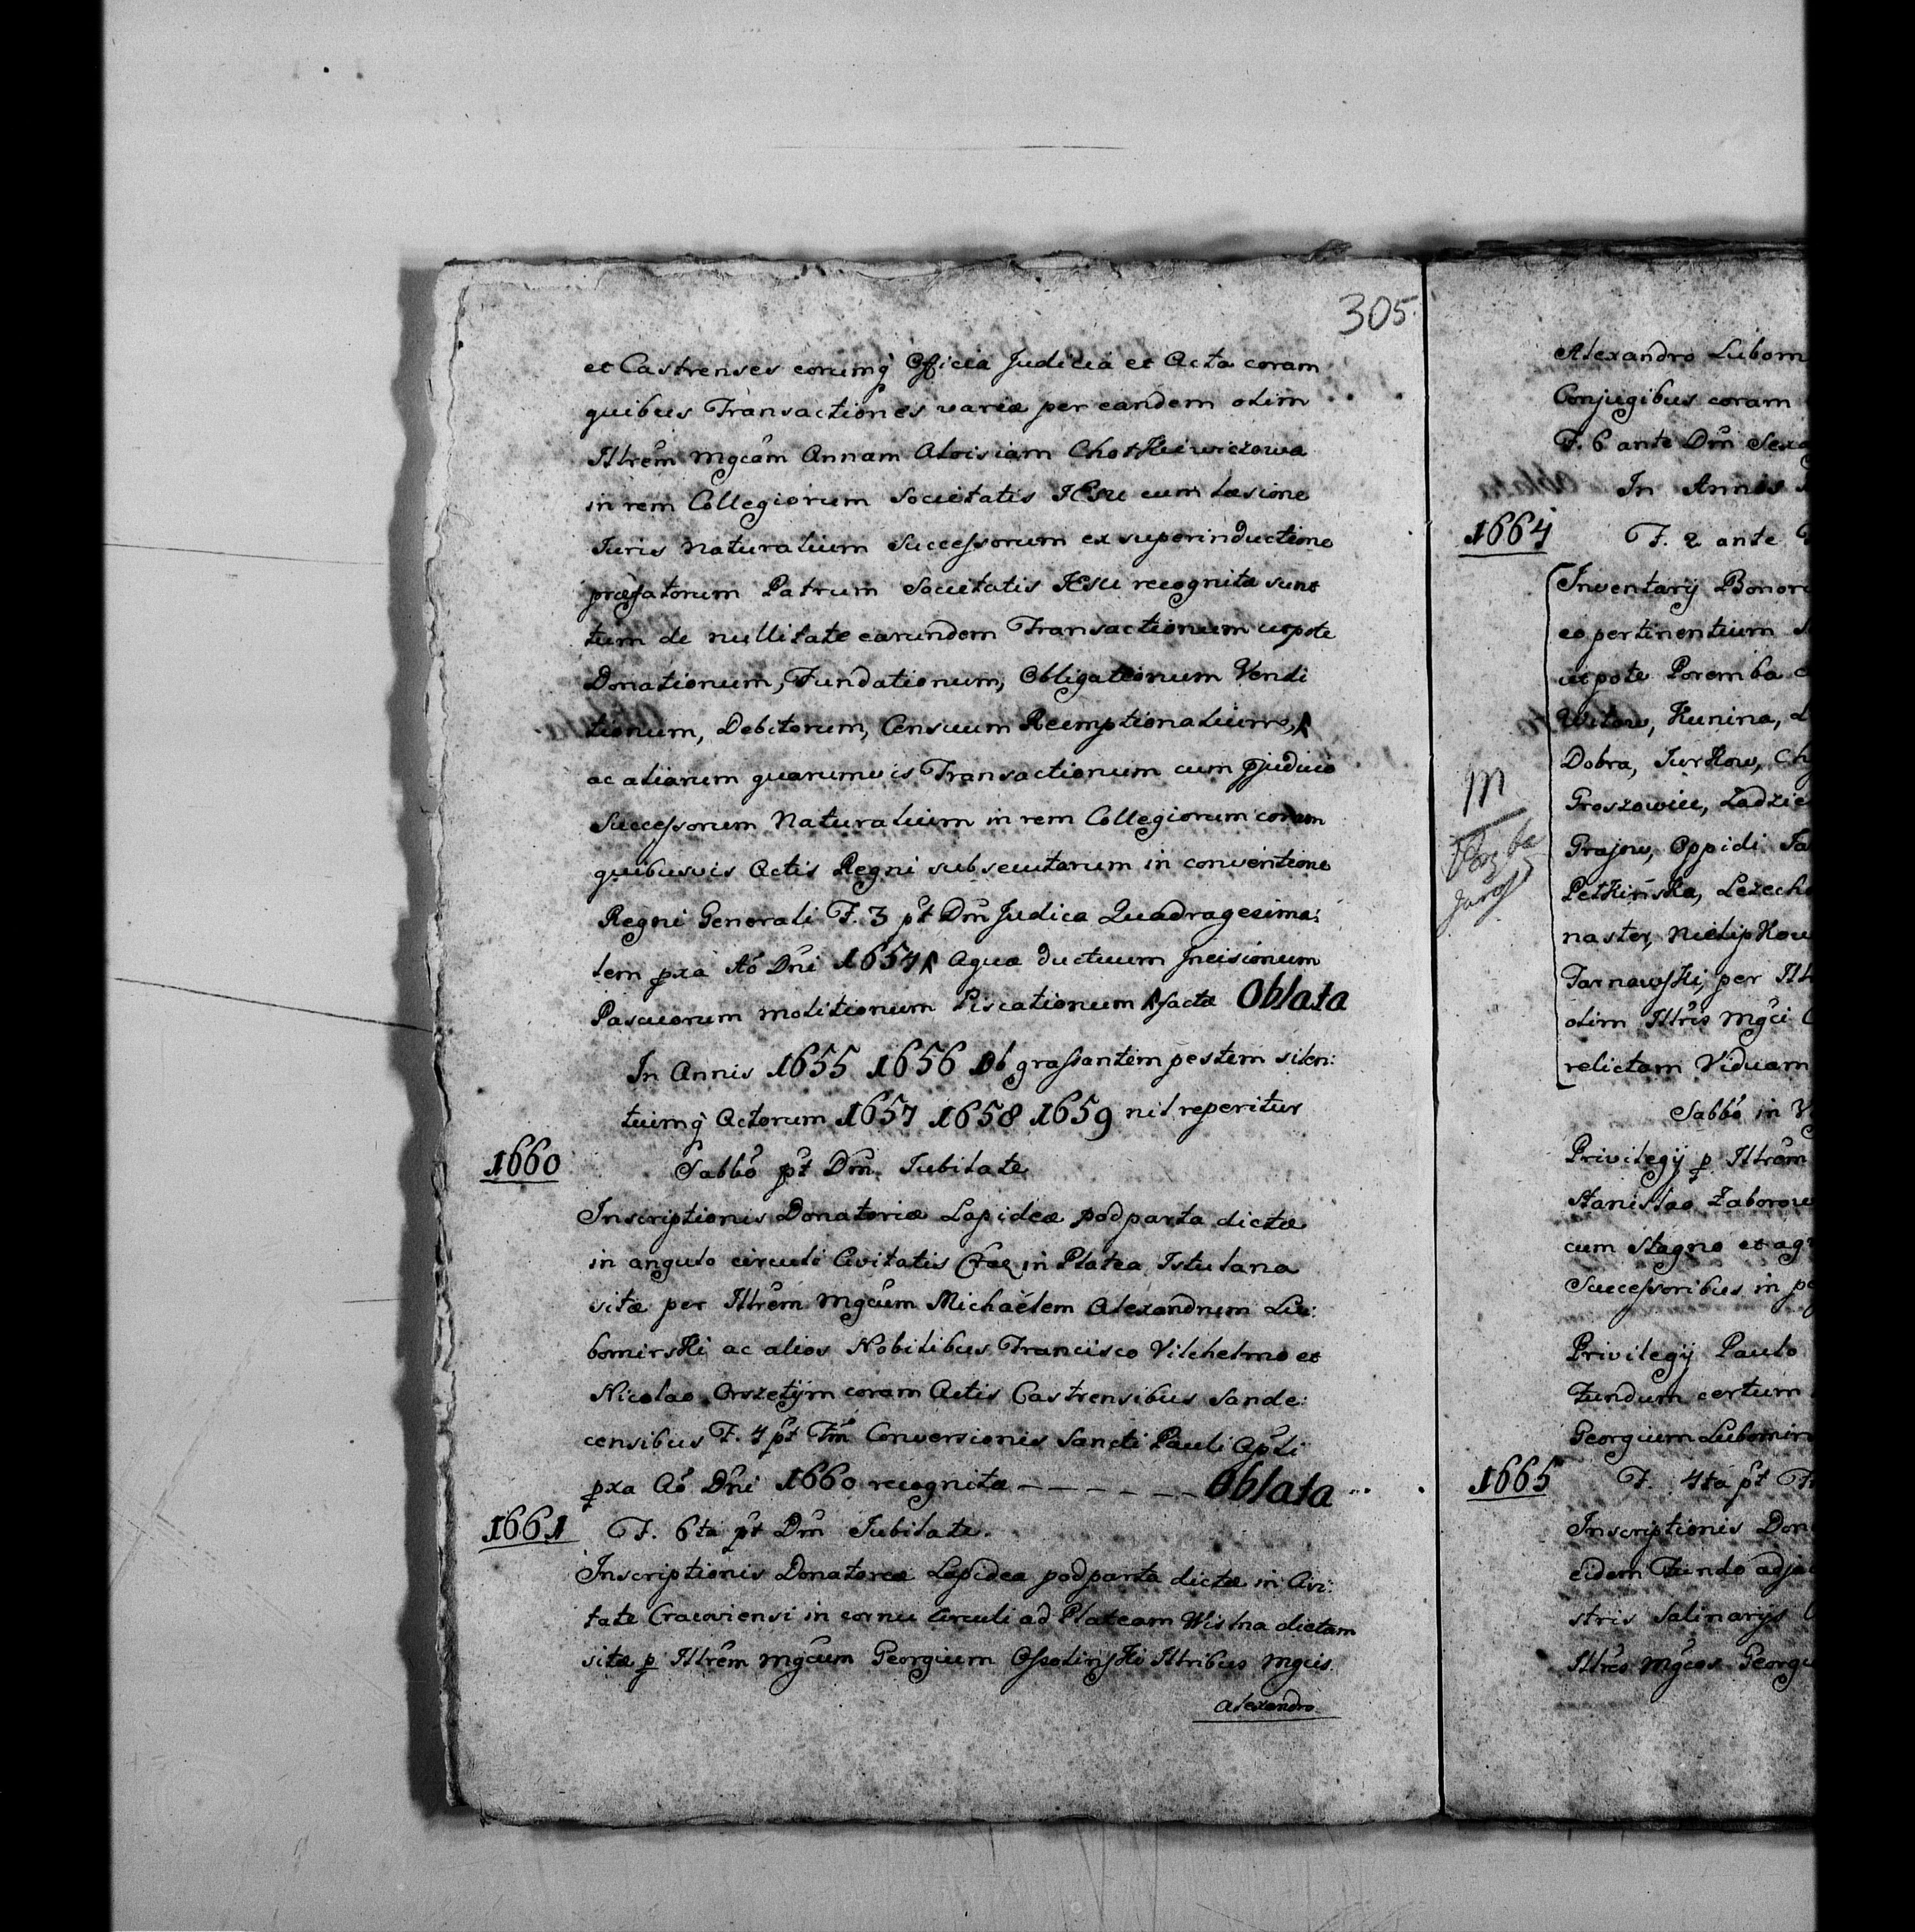 305
et Castrenses eorumq̃ Officia Judicia et Acta coram
quibus Transactiones variæ per eandem olim
Illrẽm Mgcãm Annam Aloisiam Chotkiewiczowa
in rem Collegiorum Societatis JESU cum læsione
Juris Naturalium Successorum ex superinductione
præfatorum Patrum Societatis JESU recognitæ sunt
tum de nullitate earundem Transactionum utpote
Donationum, Fundationum, Obligationum Vendi
tionum, Debitorum, Censuum Reemptionalium,
ac aliarum quarumvis Transactionum cum pjudicio
Successorum Naturalium in rem Collegiorum coram
quibusvis Actis Regni subsecutarum in conventione
Regni Generali F. 3 pt Dm̃ Judica Quadragesima:
lem pxa Aõ Dñi 1654 Aquæ ductuum Incisionum
Pascuorum molitionum Piscationum factæ Oblata
In Annis 1655 1656 Ob grassantem pestem silen:
tiumq̃ Actorum 1657 1658 1659 nil reperitur
1660 Sabbõ pt Dm̃ Jubilate
Inscriptionis Donatoriæ Lapideæ podparta dictæ
in angulo circuli Civitatis in Platea Istulana
sitæ per Illrẽm Mgcũm Michaëlem Alexandrum Lu:
bomirski ac alios Nobilibus Francisco Vilhelmo et
Nicolao Orszetÿm coram Actis Castrensibus Sande:
censibus F. 4 pt Fm̃ Conversionis Sancti Pauli Apli
pxa Aõ Dñi 1660 recognitæ – – – – – – Oblata
1661 F. 6ta pt Dm̃ Jubilate.
Inscriptionis Donatoriæ Lapideæ podparta dictæ in Civi:
tate Cracoviensi in cornu Circuli ad Plateam Wislna dictam
sitæ p Illrẽm Mgcũm Georgium Ossolinski Illribus Mgcis
Alexandro
Alexandro Lubom
Conjugibus coram
F. 6 ante Dm̃ Sexag
In Annis
1664 F. 2 ante
Inventarÿ Bonor
eo pertinentium
utpote Poremba
Witow, Kunina, L
Dobra, Jurkow, Ch
Groszowice, Ladzie
Grajow, Oppidi Ja
Petkinska, Lezech
naster, Nielipkow
Tarnawski, per Ill
olim Illris Mgci
relictam Viduam
Sabbõ in
Privilegÿ p Illrẽm
Stanislao Zaborow
cum Stagno et ag
Successoribus in p
Privilegÿ Paulo
Fundum certum
Georgium Lubomir
1665 F. 4ta pt F
Inscriptionis Don
eidem Fundo adja
stris Salinarÿs
Illres Mgcos Georgi